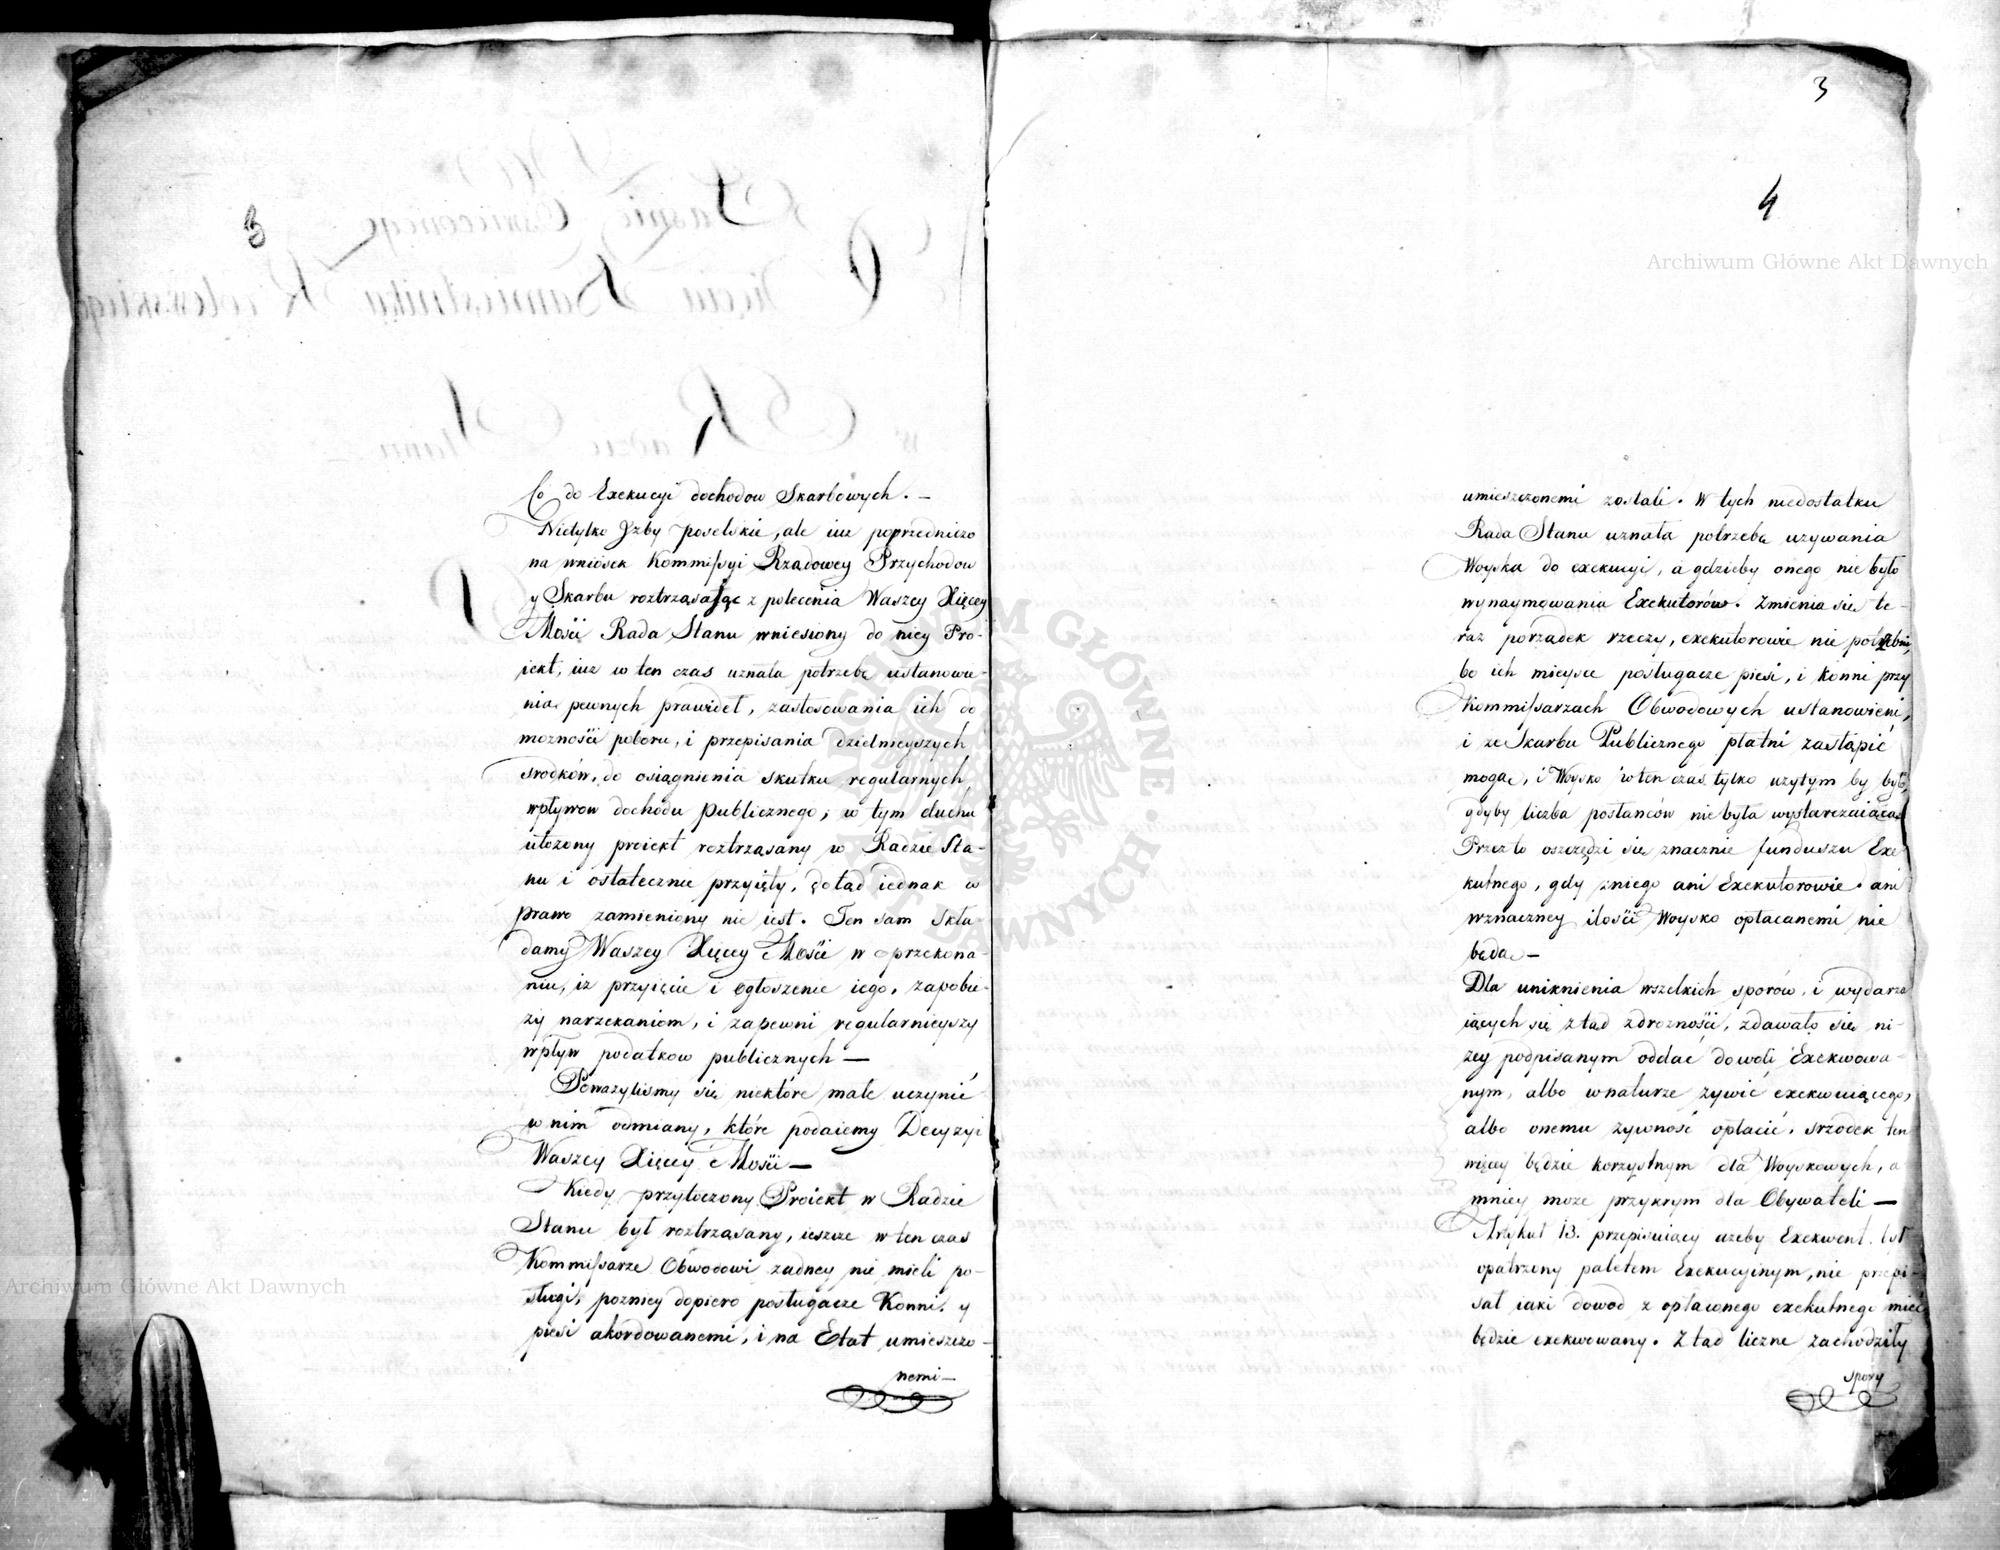 3
Co do Exekucyi dochodow Skarbowych. —
Nietylko Jzby poselskie, ale iuz poprzedniczo
na wniosek Kommissyi Rządowey Przychodow
y Skarbu roztrząsaiąc z polecenia Waszey Xięcey
Mości Rada Stanu wniesiony do niey Pro-
iekt, iuz w ten czas uznała potrzebę ustanowie-
nia pewnych prawideł, zastosowania ich do
moznosci poboru, i przepisania dzielnieyszych
srodków, do osiągnienia skutku regularnych
wpływow dochodu publicznego; w tym duchu
ułozony proiekt roztrząsany w Radzie Sta-
nu i ostatecznie przyięty, dotąd iednak w
prawo zamieniony nie iest. Ten sam skła-
damy Waszey Xięcey Mości w przekona-
niu, iz przyięcie i ogłoszenie iego, zapobie-
zy narzekaniom, i zapewni regularnieyszy
wpływ podatkow publicznych —
Powazylismy się niektóre małe uczynić
w nim odmiany, które podaiemy Decyzyi
Waszey Xięcey Mości —
Kiedy przytoczony Proiekt w Radzie
Stanu był roztrząsany, ieszcze w ten czas
Kommissarze Obwodowi zadney nie mieli po-
sługi, pozniey dopiero posługacze Konni, y
piesi akordowanemi, i na Etat umieszczo-
nemi —
3
4
umieszczonemi zostali. W tych niedostatku
Rada Stanu uznała potrzebę uzywania
Woyska do exekucyi, a gdzieby onego nie było
wynaymowania Exekutorów. Zmienia się te-
raz porządek rzeczy, exekutorowie nie potrzebni,
bo ich mieysce posługacze piesi, i konni przy
Kommissarzach Obwodowych ustanowieni,
i ze Skarbu Publicznego płatni zastąpić
mogą, i Woysko w ten czas tylko uzytym by było,
gdyby liczba posłanców nie była wystarczaiącą.
Przez to oszczędzi się znacznie funduszu Exe-
kutnego, gdy z niego ani Exekutorowie ani
w znaczney ilości Woysko opłacanemi nie
będą —
Dla uniknienia wszelkich sporów, i wydarza
iących się ztąd zdrozności, zdawało się ni-
zey podpisanym oddać do woli Exekwowa-
nym, albo w naturze zywić exekwuiącego,
albo onemu zywność opłacić, srzodek ten
więcey będzie korzystnym dla Woyskowych, a
mniey moze przykrym dla Obywateli —
Artykuł 13. przepisuiący azeby Exekwent był
opatrzony paletem Exekucyinym, nie przepi-
sał iaki dowod z opłaconego exekutnego mieć
będzie exekwowany. Ztąd liczne zachodziły
spory
Archiwum Główne Akt Dawnych
Archiwum Główne Akt Dawnych